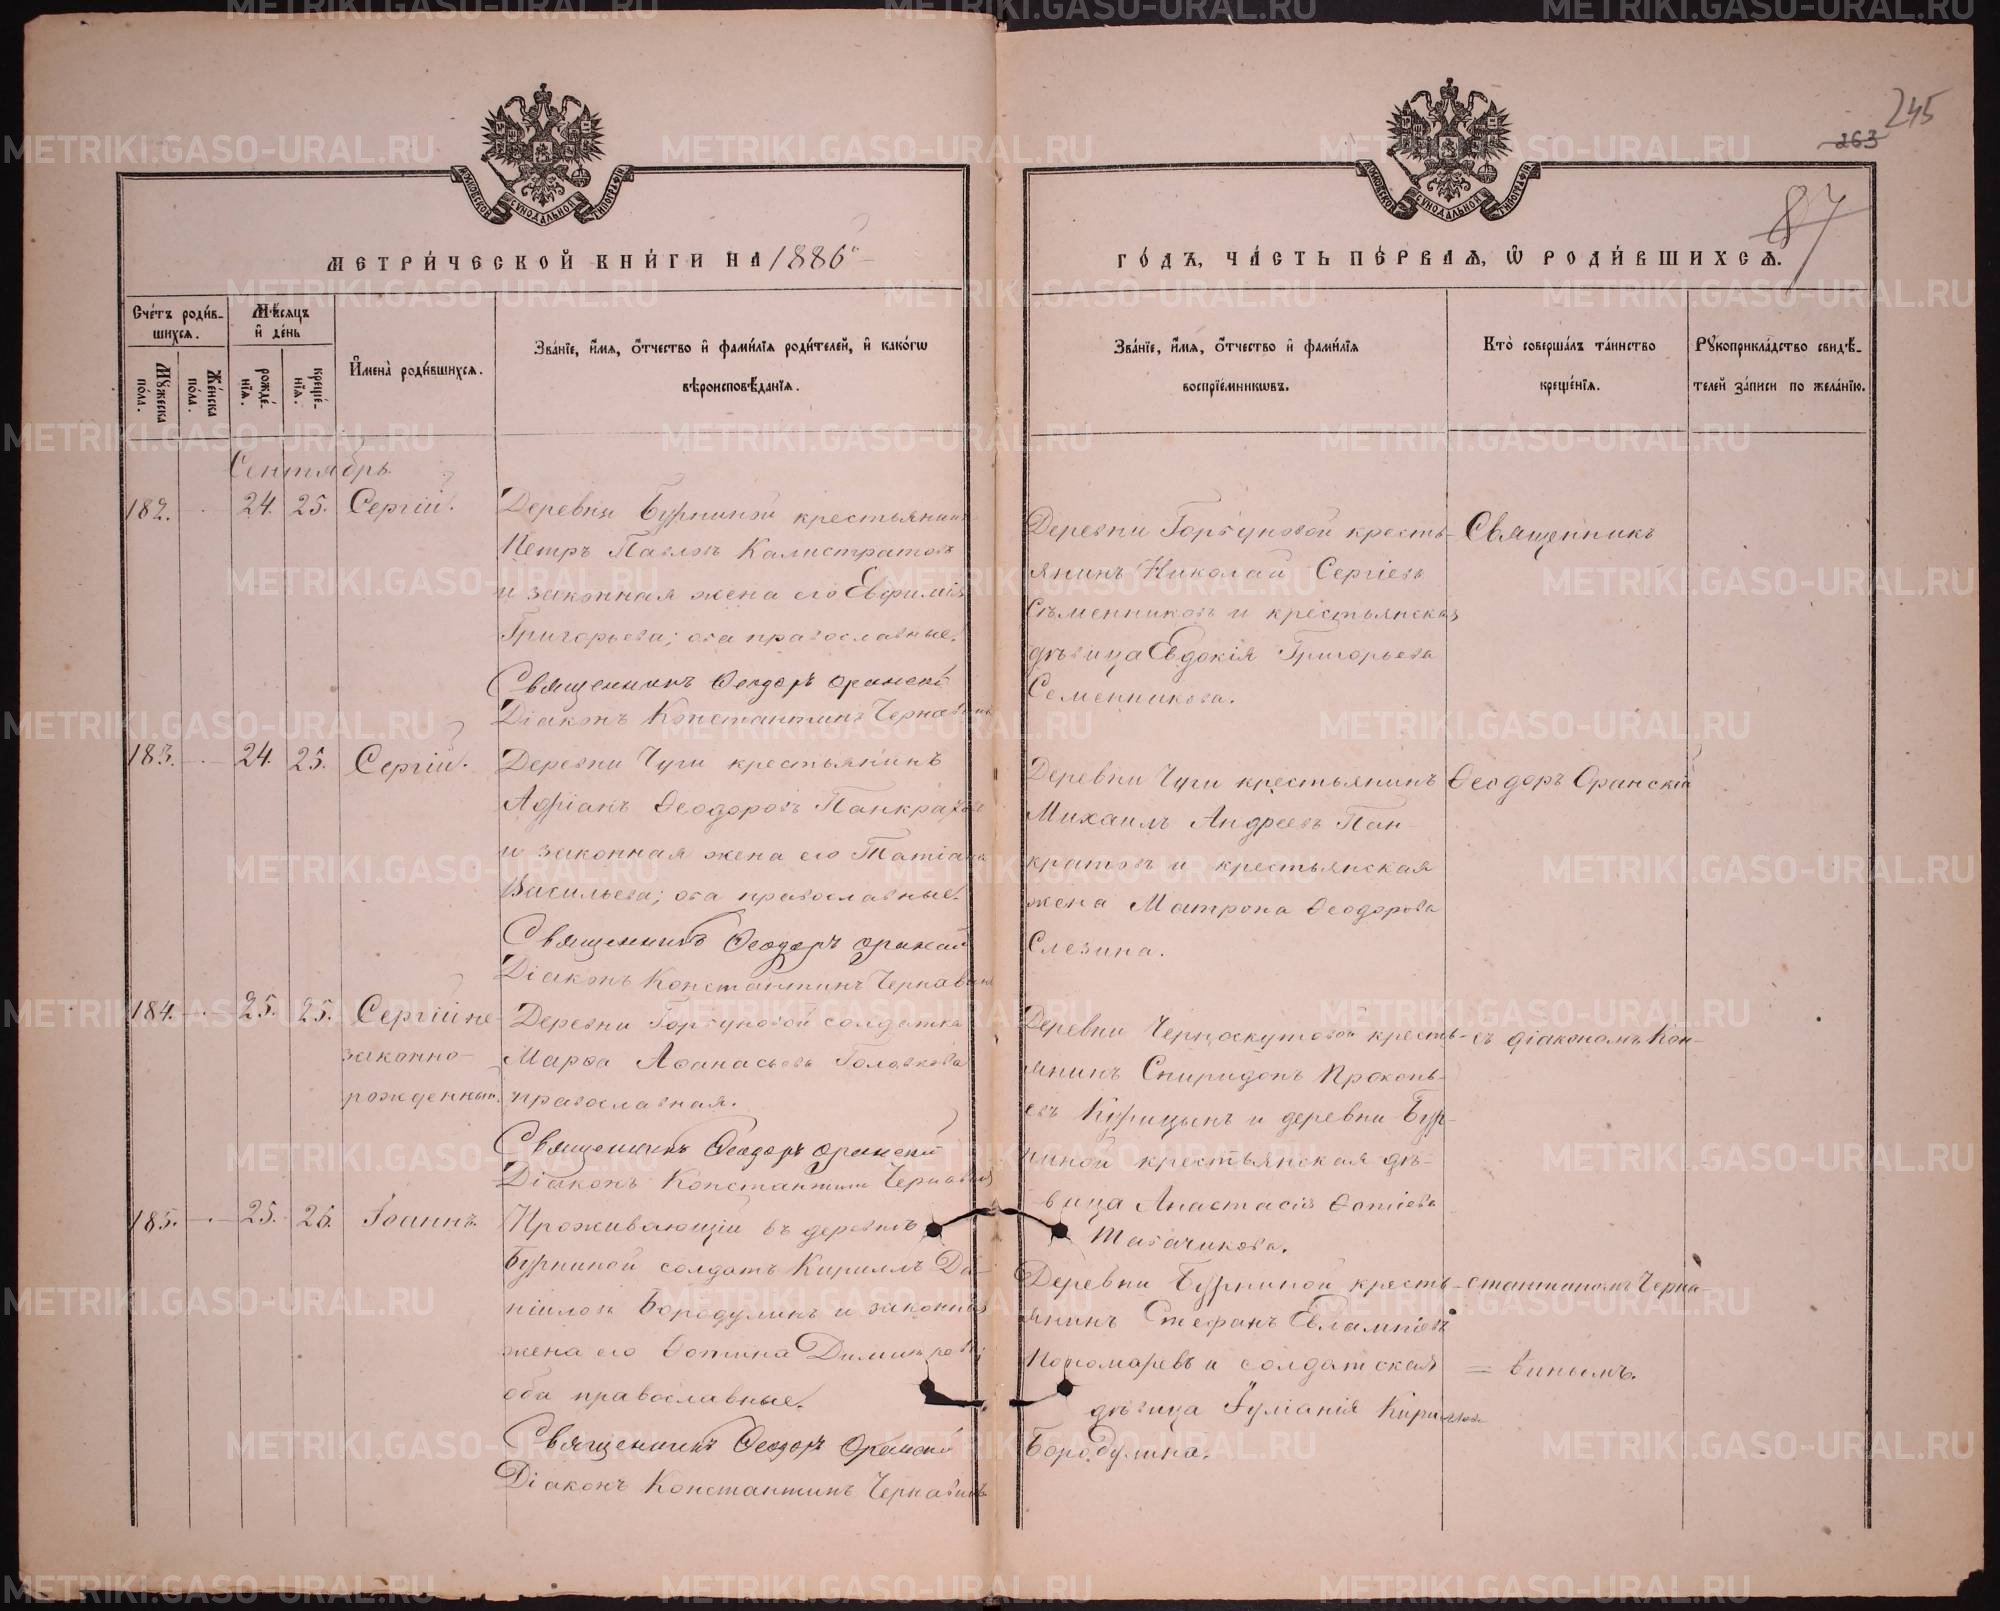 245
263
87
МЕТРИ́ЧЕСКОЙ КНИ́ГИ НА 1886
ГО́ДЪ, ЧА́СТЬ ПЕ́РВАѦ, Ѡ҆ РОДИ́ВШИХСѦ.
Сче́тъ роди́в-
шихсѧ.
Мꙋ́жеска
по́ла.
Же́нска
по́ла.
Мѣ́сѧцъ
и҆ де́нь
рожде́-
нїѧ.
креще́-
нїѧ.
И҆мена̀ роди́вшихсѧ.
Зва́нїе, и҆́мѧ, ѻ҆́тчество и҆ фами́лїѧ роди́телей, и҆ како́гѡ
вѣроисповѣ́данїѧ.
Зва́нїе, и҆́мѧ, ѻ҆́тчество и҆ фами́лїѧ
воспрїе́мникѡвъ.
Кто̀ соверша́лъ та́инство
креще́нїѧ.
Рꙋкоприкла́дство свидѣ́-
телей за́писи по жела́нїю.
Сентябрь
182. - 24. 25. Сергій.
Деревни Бурниной крестьянинъ
Петръ Павловъ Калистратовъ
и законная жена его Евфимія
Григорьева; оба православные.
Священникъ Ѳеодоръ Оранскій
Діаконъ Константинъ Чернавинъ
Деревни Горбуновой кресть-
янинъ Николай Сергіевъ
Сѣменниковъ и крестьянская
дѣвица Евдокія Григорьева
Семенникова.
Священникъ
183. - 24. 25. Сергій.
Деревни Чуги крестьянинъ
Адріанъ Ѳеодоровъ Панкратовъ
и законная жена его Татіана
Васильева; оба православные.
Священникъ Ѳеодоръ Оранскій
Діаконъ Константинъ Чернавинъ
Деревни Чуги крестьянинъ
Михаилъ Андреевъ Пан-
кратовъ и крестьянская
жена Матрона Ѳеодорова
Слезина.
Ѳеодоръ Оранскій
184. - 25. 25. Сергій не-
законно-
рожденный.
Деревни Горбуновой солдатка
Марѳа Аѳанасьева Головкова
православная.
Священникъ Ѳеодоръ Оранскій
Діаконъ Константинъ Чернавинъ
Деревни Черноскутовой кресть-
янинъ Спиридонъ Прокопь-
евъ Курицынъ и деревни Бур-
ниной крестьянская дѣ-
вица Анастасія Ѳотіева
Табачикова.
съ діакономъ Кон-
185. - 25. 26. Іоаннъ.
Проживающій въ деревнѣ
Бурниной солдатъ Кириллъ Да-
ніиловъ Бородулинъ и законная
жена его Ѳотина Димитріева;
оба православные.
Священникъ Ѳеодоръ Оранскій
Діаконъ Константинъ Чернавинъ
Деревни Бурниной кресть-
янинъ Стефанъ Евлампіевъ
Пономаревъ и солдатская
дѣвица Іуліанія Кириллова
Бородулина.
стантиномъ Черна-
= винымъ.